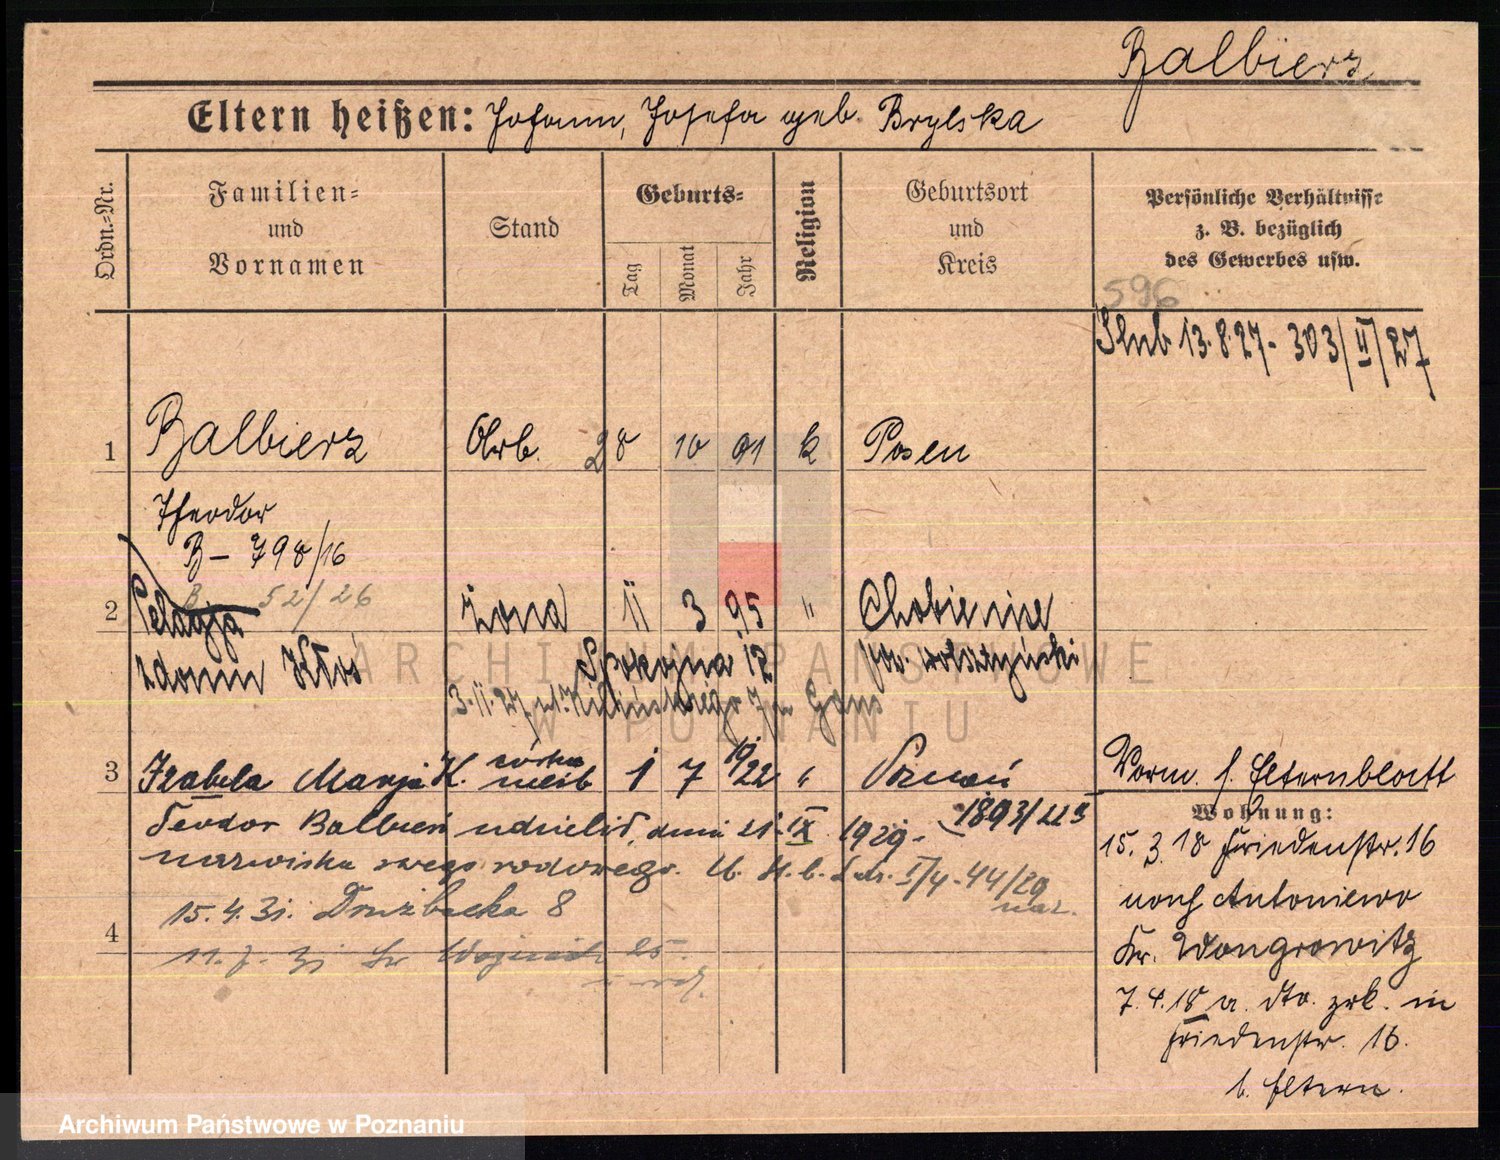 Balbierz
Eltern heißen: Johann, Josefa geb. Brylska
Ordn.=Nr.
Familien=
und
Vornamen
Stand
Geburts=
Tag
Monat
Jahr
Religion
Geburtsort
und
Kreis
Persönliche Verhältnisse
z. B. bezüglich
des Gewerbes usw.
596
Ślub 13.8.27 - 303/II/27
1 Balbierz Arb. 28 10 91 k Posen
Theodor
B - 798/16
B. 52/26
2 Pelagja żona 11 3 95 " Chobienice
z domu Kłos Spokojna 12 pow. wolsztyński
3.11.27
3 Izabela Marja K. córka nieśl. 1 7 19/22 " Poznań
Vorm. s. Elternblatt
Teodor Balbierz udzielił dnia 21. IX 1929. 1893/
nazwiska swego rodowego. 44/29
Wohnung:
15.3.18 Friedenstr. 16
nach Antoniewo
Kr. Wongrowitz
7.4.18 a. dto. zrk. in
Friedenstr. 16.
b. Eltern.
15.4.31. Drużbacka 8
4 25.
ARCHIWUM PAŃSTWOWE
W POZNANIU
Archiwum Państwowe w Poznaniu